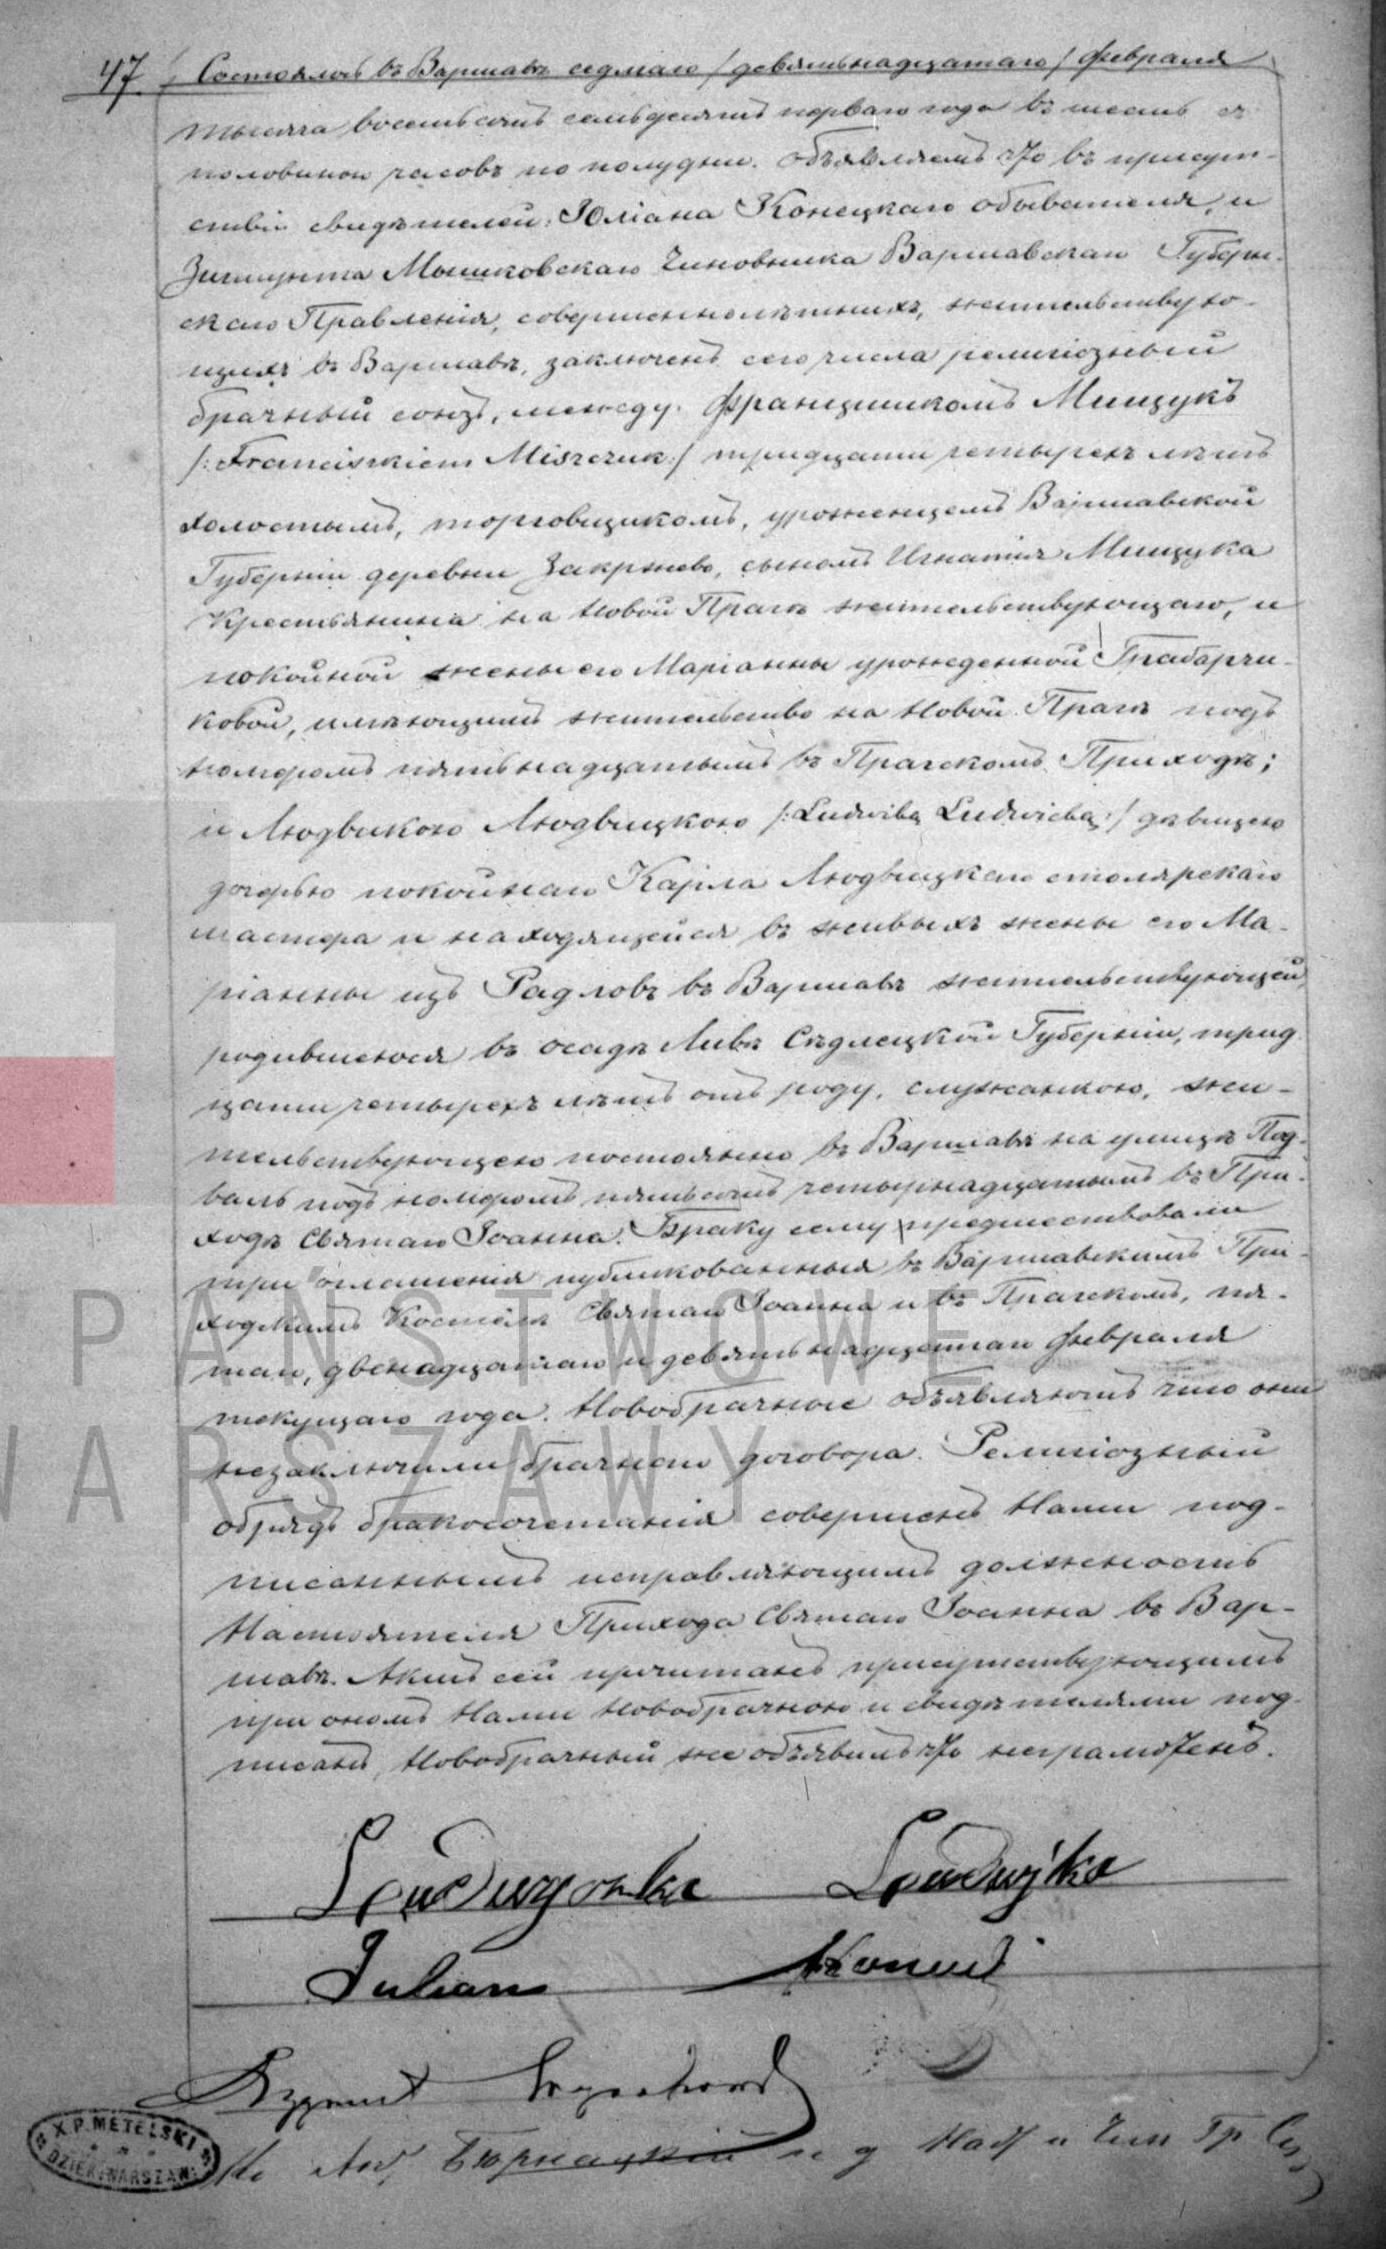 47
Состоялось въ Варшавѣ седмаго /девятьнадцатаго/ Февраля
тысяча восемьсотъ семьдесятъ перваго года въ шесть съ
половиною часовъ по полудни. Объявляемъ что въ присут-
ствіи свидѣтелей: Юліана Конецкаго обывателя, и
Зигмунта Мышковскаго Чиновника Варшавскаго Губерн-
скаго Правленія, совершеннолѣтнихъ, жительствую-
щихъ въ Варшавѣ, заключенъ сего числа религіозный
брачный союзъ, между Францишкомъ Мищукъ
/:Franciszkiem Miszczuk:/ тридцати четырехъ лѣтъ
холостымъ, торговщикомъ, уроженцемъ Варшавской
Губерніи деревни Закржево, сыномъ Игнатія Мищука
Крестьянина на Новой Прагѣ жительствующаго, и
покойной жены его Маріанны урожденной Грабарчи-
ковой, имѣющимъ жительство на Новой Прагѣ подъ
номеромъ пятьнадцатымъ въ Пражскомъ Приходѣ;
и Людвикою Людвицкою /:Ludwiką Ludwicką:/ дѣвицею
дочерью покойнаго Карла Людвицкаго столярскаго
мастера и находящейся въ живыхъ жены его Ма-
ріанны изъ Радловъ въ Варшавѣ жительствующей,
родившеюся въ осадѣ Ливѣ Сѣдлецкой Губерніи, трид
цати четырехъ лѣтъ отъ роду, служанкою, жи-
тельствующею постоянно въ Варшавѣ на улицѣ Под-
валь подъ номеромъ пятьсотъ четырнадцатымъ въ При-
ходѣ Святаго Іоанна. Браку сему предшествовали
три оглашенія публикованныя въ Варшавскимъ При-
ходскимъ Костелѣ Святаго Іоанна и въ Пражскомъ, пя-
таго, двенадцатаго и девятьнадцатаго Февраля
текущаго года. Новобрачные объявляютъ что они
незаключили брачнаго договора. Религіозный
обрядъ бракосочетанія совершенъ Нами под-
писаннымъ исправляющимъ должность
Настоятеля Прихода Святаго Іоанна въ Вар-
шавѣ. Актъ сей прочитанъ присутствующимъ
при ономъ Нами Новобрачною и свидѣтелями под-
писанъ, Новобрачный же объявилъ что неграмотенъ.
Ludwika
Julian
Zygmunt
PAŃSTWOWE
WARSZAWY
X.P. METELSKI
DZIEK. WARSZAW.